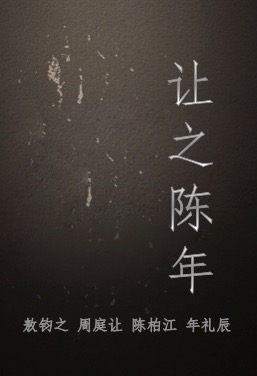 让之陈年
敖钧之 周庭让 陈柏江 年礼辰